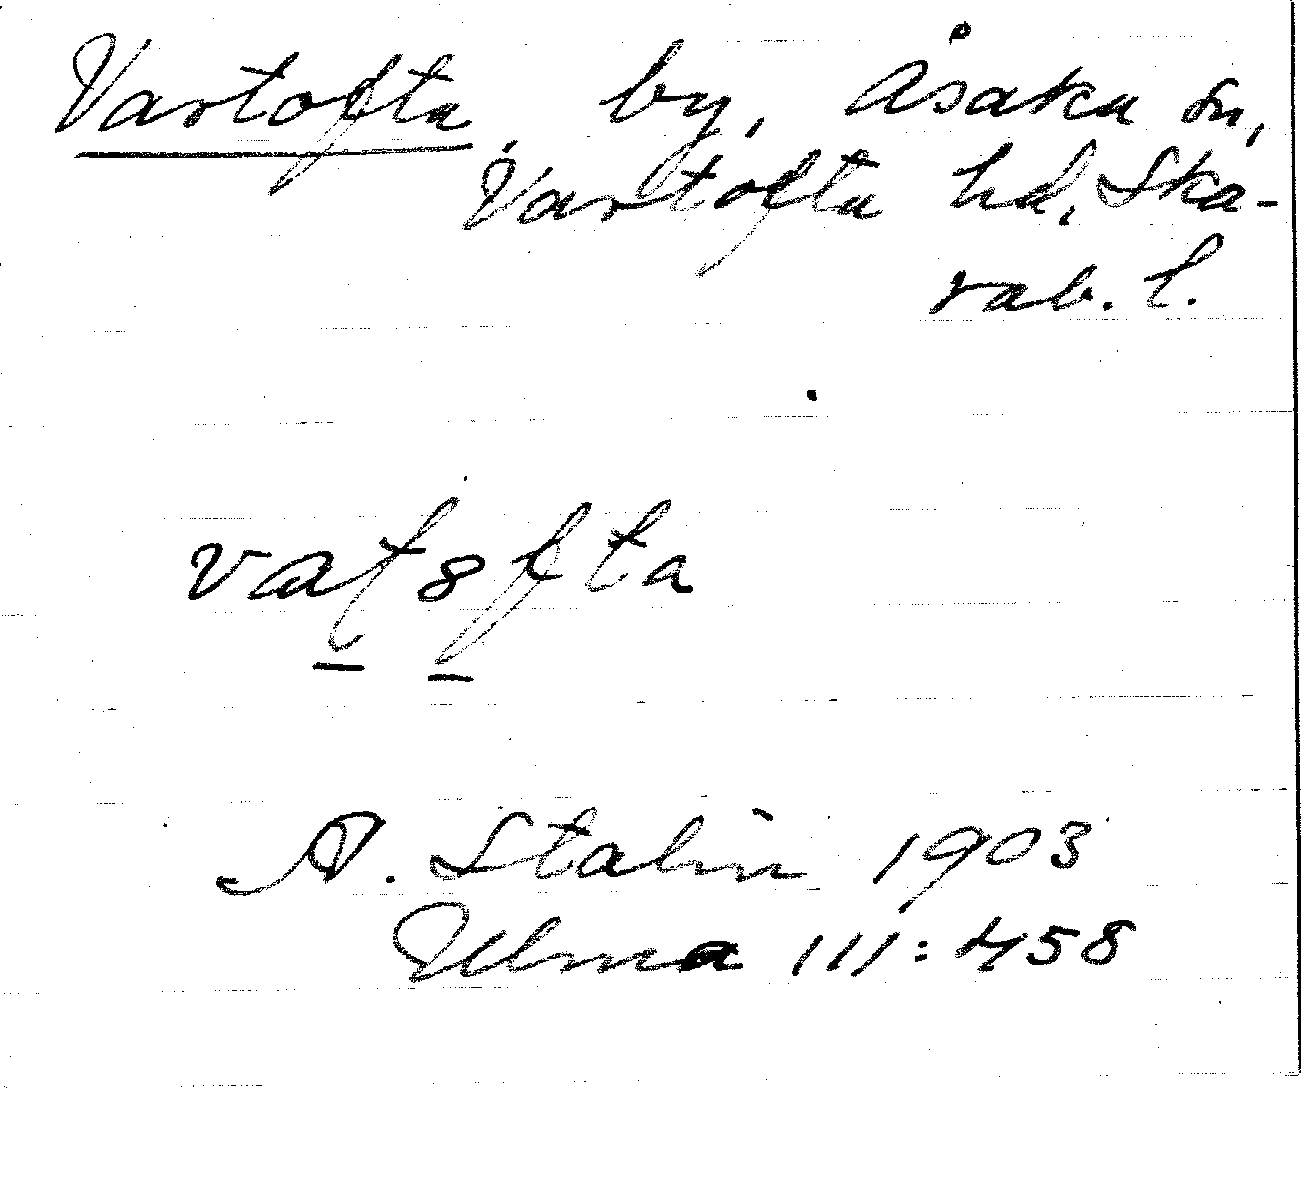 Vartofta, by, Åsaka sn,
Vartofta hd, Ska-
rab. l.
A. Stalin 1903
Ulma 111:458